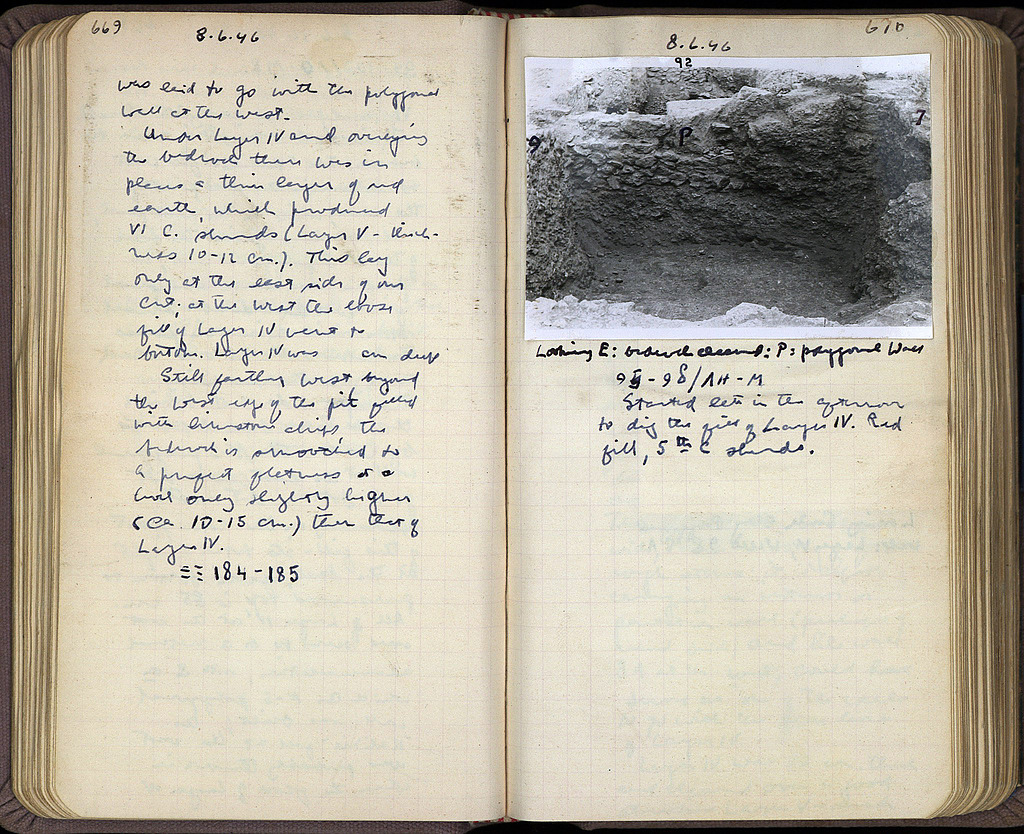 669
8.6.46
was laid to go with the polygonal
wall at the west.
Under Layer IV and overlying
the bedrock there was in
places a thin layer of red
earth, which produced
VI C. sherds (Layer V - thick-
ness 10-12 cm.). This lay
only at the east side of our
cut; at the west the loose
fill of Layer IV went to
bottom. Layer IV was cm deep
Still farther west, beyond
the west edge of the pit filled
with limestone chips, the
bedrock is smoothed to
a perfect flatness at a
level only slightly higher
(Ca. 10-15 cm.) than that of
Layer IV.
ΞΞ 184-185
670
8.6.46
92
P
9
7
Looking E: bedrock cleared: P: polygonal Wall
- 98/ΛΗ-Μ
Started late in the afternoon
to dig the fill of Layer IV. Red
fill, 5th C sherds.